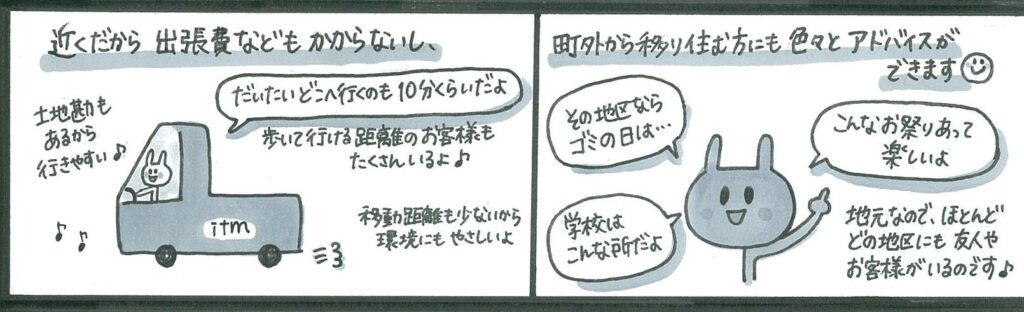 近くだから 出張費などもかからないし、
だいたいどこへ行くのも10分くらいだよ
土地勘も
あるから
行きやすい♪
歩いて行ける距離のお客様も
たくさんいるよ♪
itm
移動距離も少ないから
環境にもやさしいよ
町外から移り住む方にも色々とアドバイスが
できます☺
その地区なら
ゴミの日は…
こんなお祭りあって
楽しいよ
学校は
こんな所だよ
地元なので、ほとんど
どの地区にも友人や
お客様がいるのです♪